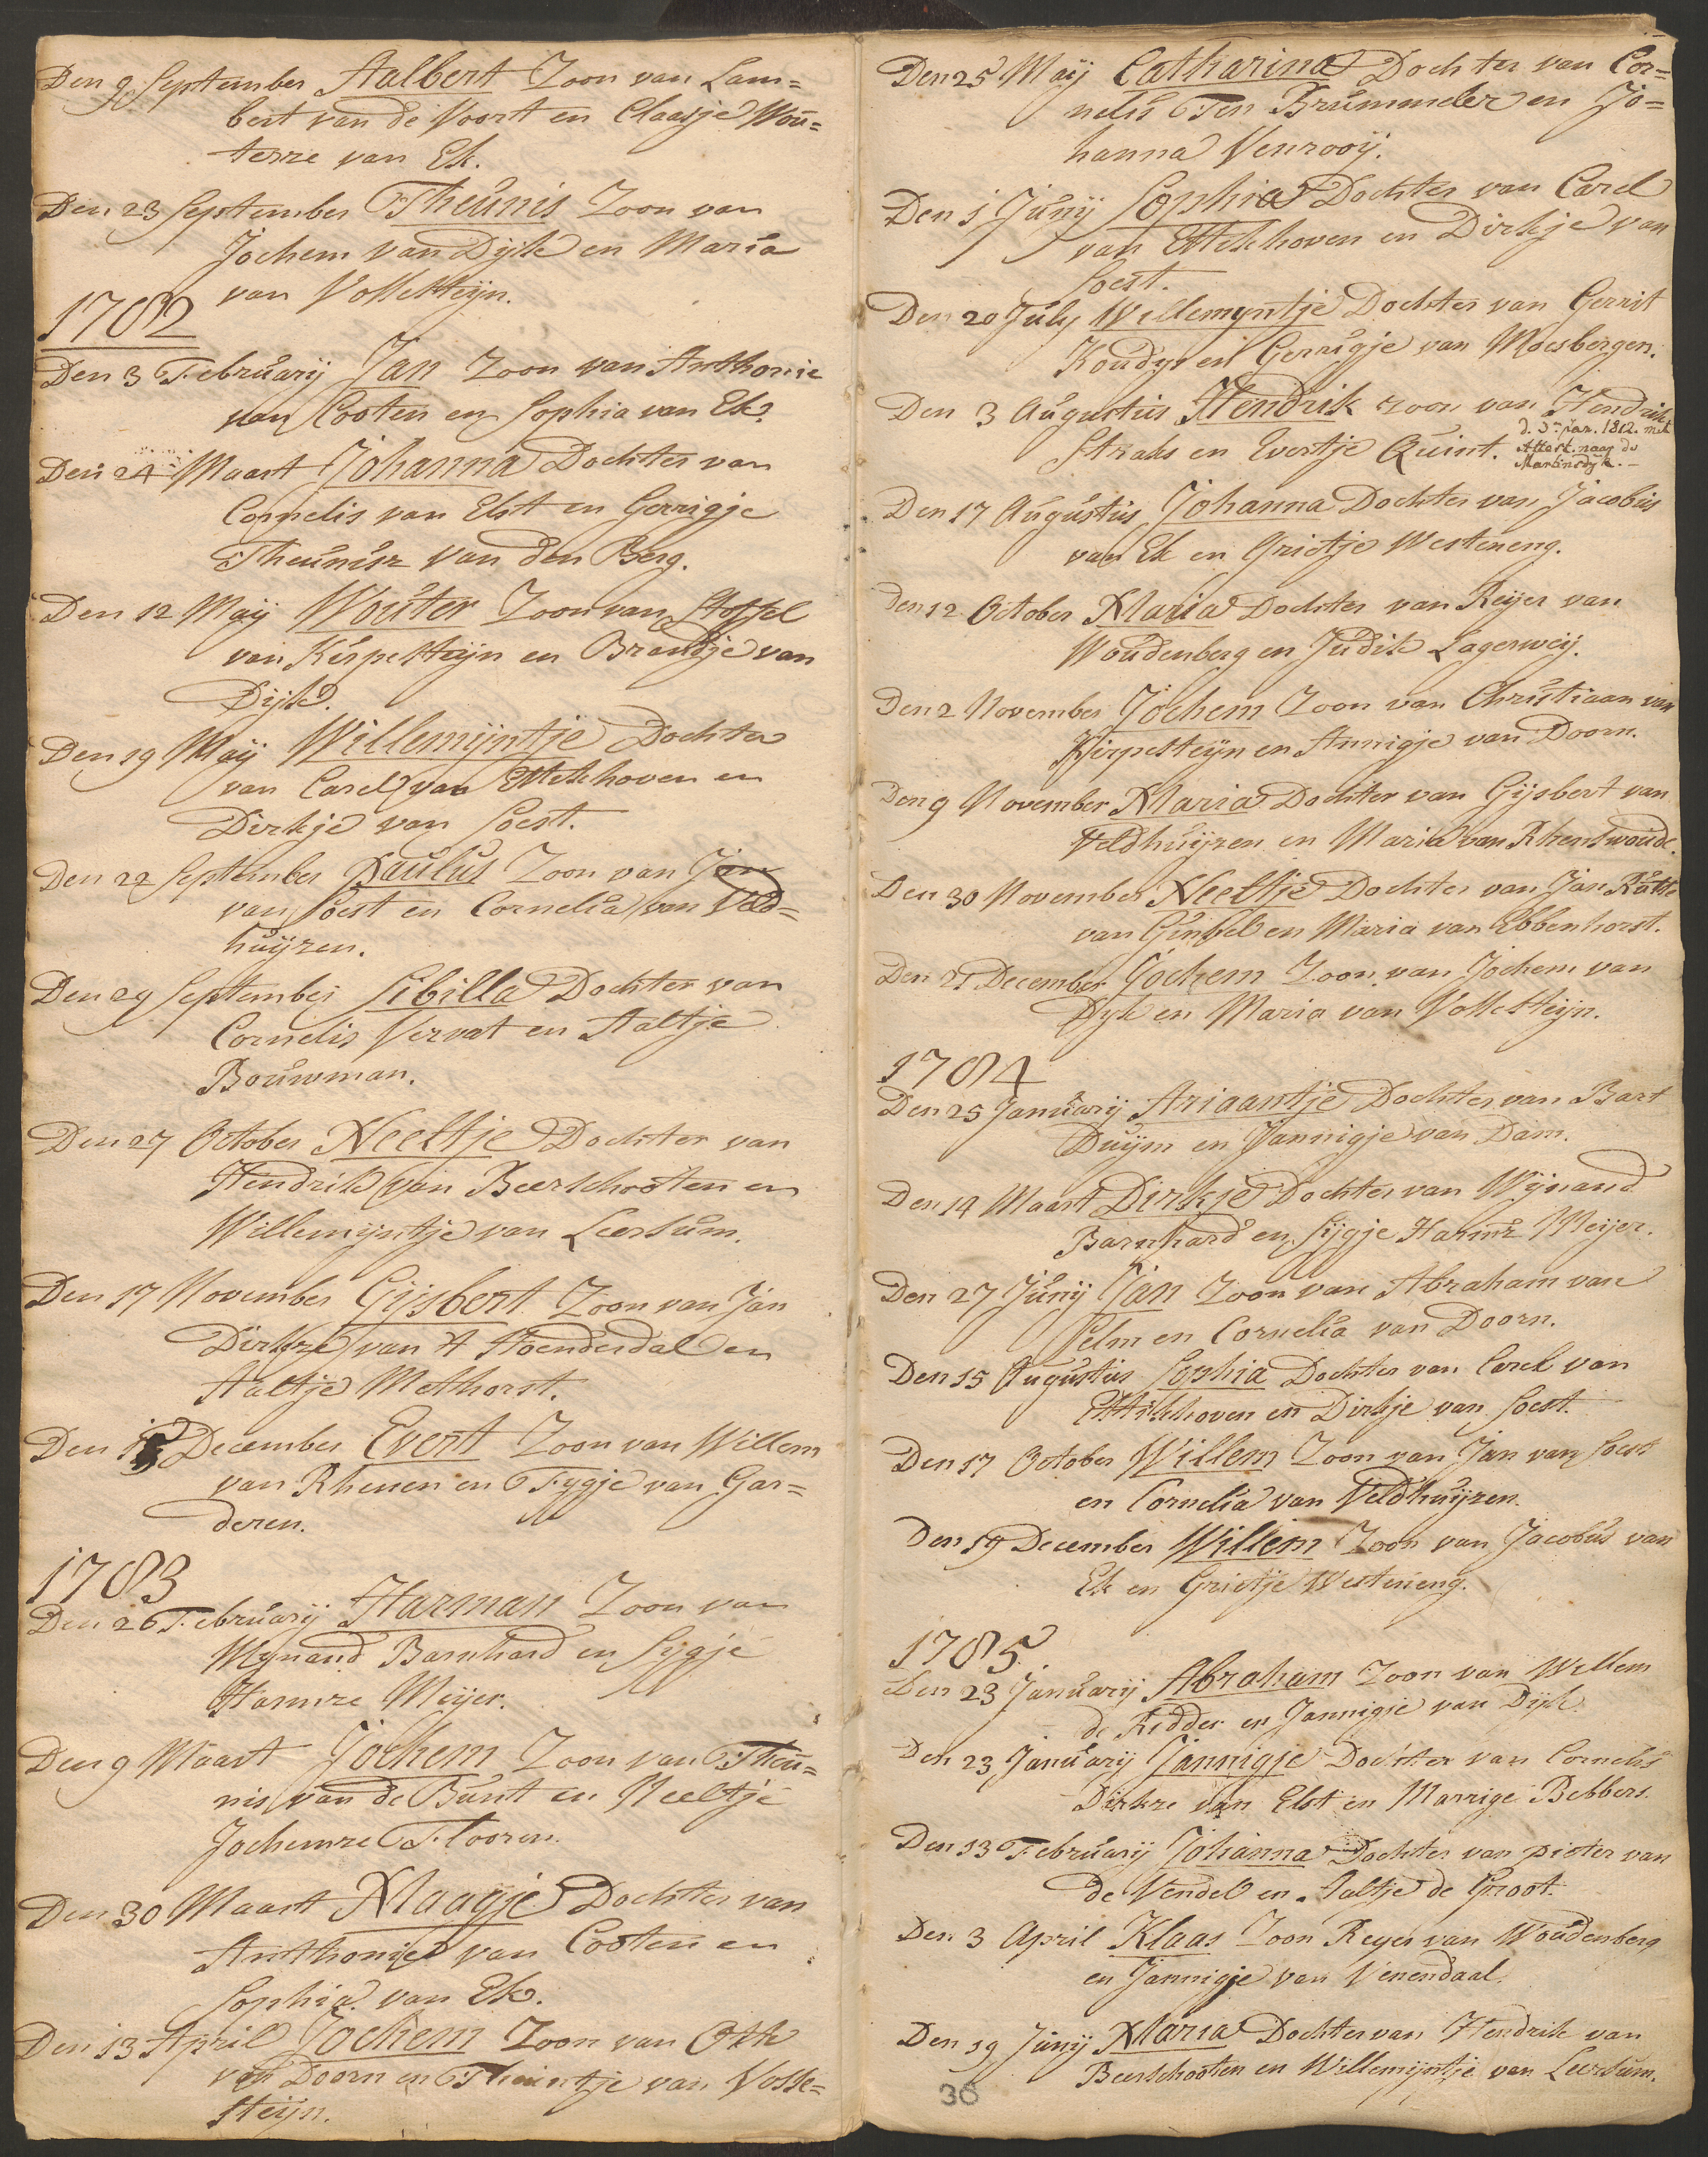 Den 9 September Aalbert Zoon van Lam=
bert van de Voort en Claasje Wou=
terze van Ek.
Den 23 September Theunis Zoon van
Jochem van Dijk en Maria
van Vossesteijn.
1782
Den 3 February Jan Zoon van Anthonie
van Cooten en Sophia van Ek.
Den 24 Maart Johanna Dochter van
Cornelis van Elst en Gerrigje
Theunisz van den Berg.
Den 12 Maij Wouter Zoon van Stoffel
van Kerpesteijn en Brandje van
Dijk.
Den 19 Maij Willemijntje Dochter
van Carel van Ettekhoven en
Dirkje van Soest.
Den 22 September Paulus Zoon van Jan
van Soest en Cornelia van Veld=
huijzen.
Den 29 September Sibilla Dochter van
Cornelis Vervat en Aaltje
Bouwman.
Den 27 October Neeltje Dochter van
Hendrik van Beerschooten en
Willemijntje van Leersum.
Den 17 November Gijsbert Zoon van Jan
Dirkze van 't Hoenderdal en
Aaltje Methorst.
Den 15 December Evert Zoon van Willem
van Rhenen en Fygje van Gar=
deren.
1783
Den 26 February Harman Zoon van
Wynand Barnhard en Sygje
Harmze Meijer.
Den 9 Maart Jochem Zoon van Theu=
nis van de Bunt en Neeltje
Jochemze Flooren.
Den 30 Maart Maagje Dochter van
Anthonie van Cooten en
Sophia van Ek.
Den 13 April Jochem Zoon van Otto
van Doorn en Theuntje van Vosse=
steijn.
Den 25 Maij Catharina Dochter van Cor=
nelis Ten Brummeler en Jo=
hanna Venrooij.
Den 1 Junij Sophia Dochter van Carel
van Ettekhoven en Dirkje van
Soest.
Den 20 July Willemyntje Dochter van Gerrit
Koudys en Gerrigje van Moesbergen.
Den 3 Augustus Hendrik zoon van Hendrik
Straks en Evertje Quint. d. 3n jan. 1812. met
Attest. naag de
Martinsdyk.-
Den 17 Augustus Johanna Dochter van Jacobus
van Ek en Grietje Westeneng.
Den 12 October Maria Dochter van Reijer van
Woudenberg en Judik Lagerweij.
Den 2 November Jochem Zoon van Christiaan van
Kerpesteijn en Annigje van Doorn.
Den 9 November Maria Dochter van Gijsbert van
Veldhuijzen en Maria van Rhenswoude.
Den 30 November Neeltje Dochter van Jan Rutte
van Ginkel en Maria van Ebbenhorst.
Den 21 December Jochem Zoon van Jochem van
Dyk en Maria van Vossesteijn.
1784
Den 25 January Ariaantje Dochter van Bart
Duijm en Jannigje van Dam.
Den 14 Maart Dirkje Dochter van Wijnand
Barnhard en Sijgje Harmz Meijer.
Den 27 Junij Jan Zoon van Abraham van
Selm en Cornelia van Doorn.
Den 15 Augustus Sophia Dochter van Carel van
Ettikhoven en Dirkje van Soest.
Den 17 October Willem Zoon van Jan van Soest
en Cornelia van Veldhuijzen.
Den 19 December Willem Zoon van Jacobus van
Ek en Grietje Westeneng.
1785
Den 23 Januarij Abraham Zoon van Willem
de Ridder en Jannigje van Dijk.
Den 23 Januarij Jannigje Dochter van Cornelis
Dirkze van Elst en Marrige Bebbers.
Den 13 Februarij Johanna Dochter van pieter van
de Vendel en Aaltje de Groot.
Den 3 April Klaas Zoon Reyer van Woudenberg
en Jannigje van Venendaal.
Den 19 Junij Maria Dochter van Hendrik van
Beerschooten en Willemijntje van Leersum.
36